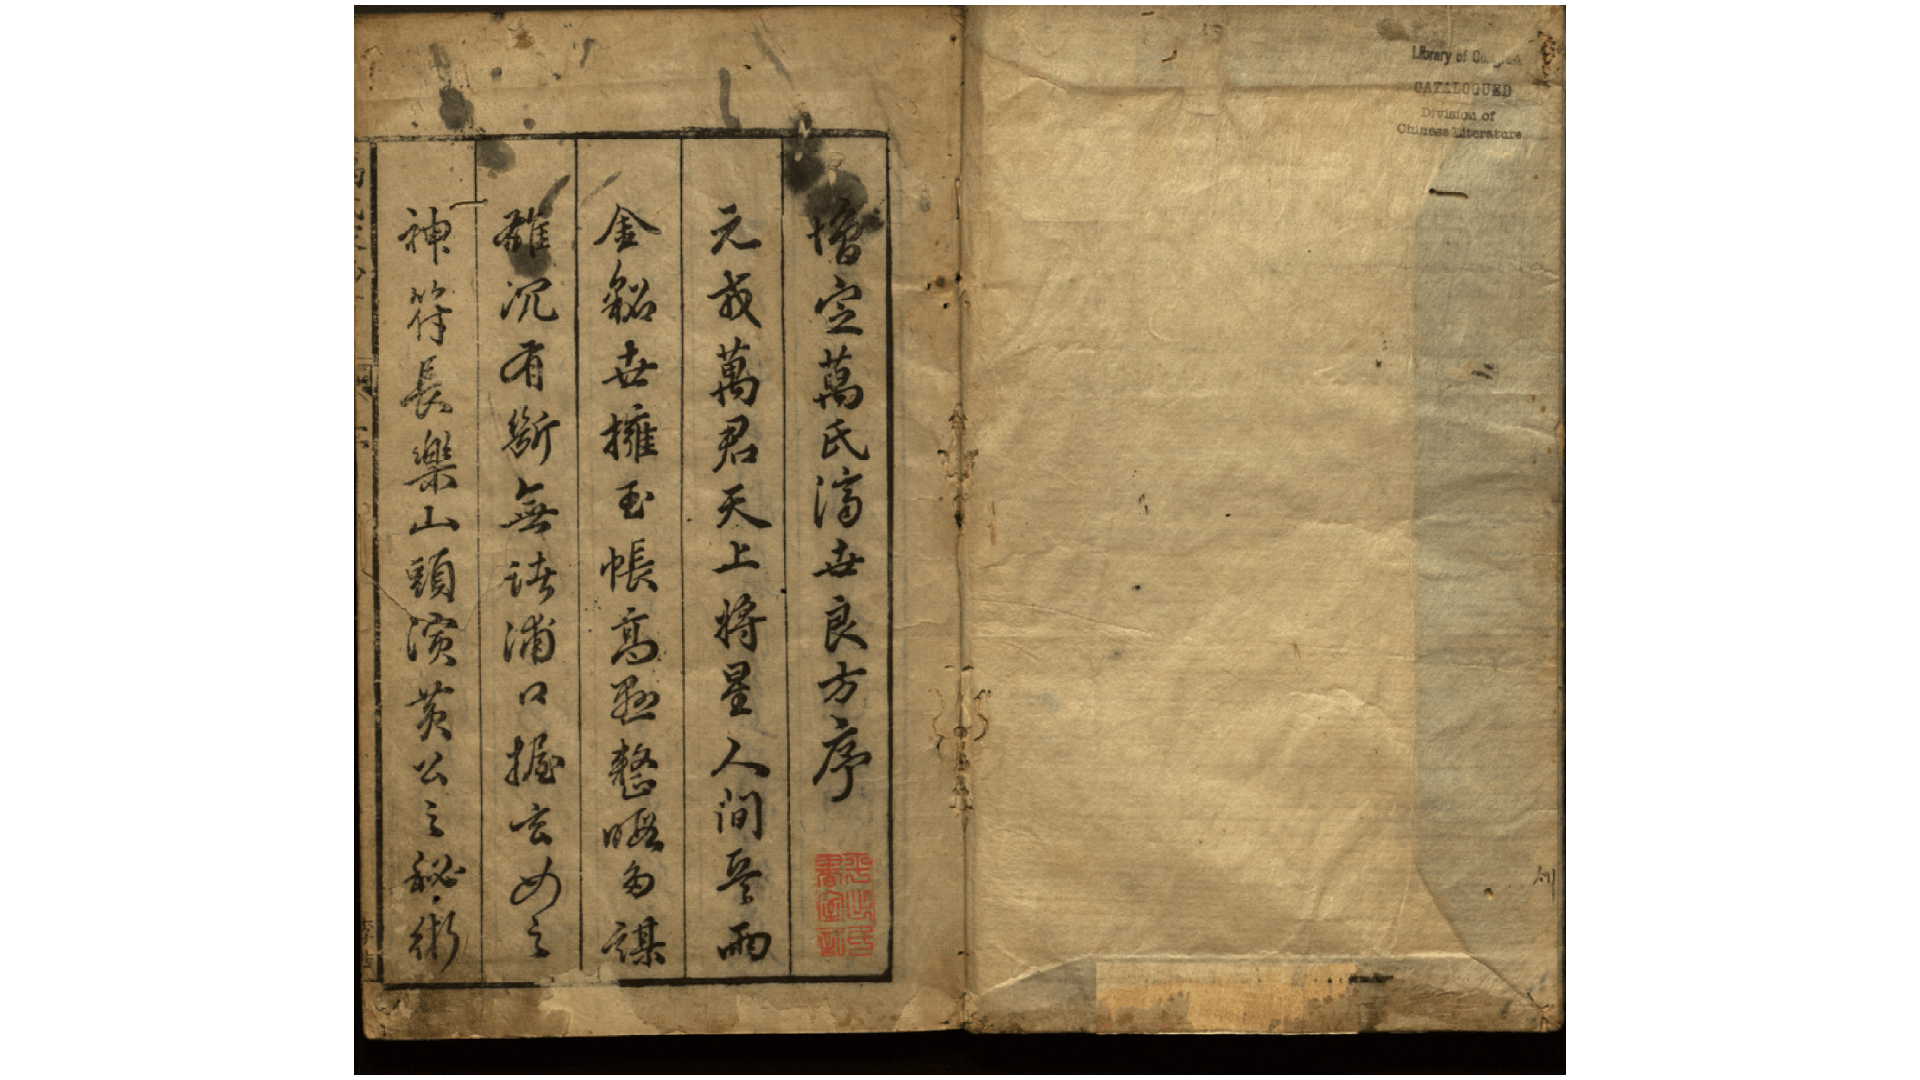 Library of Congress
CATALOGUED
Division of
Chinese Literature
增定萬氏濟世良方序
元戎萬君天上將星人間雨
金貂世擁玉帳高懸整暇多謀
雅沉有斷無諸浦口握玄女之
神符長樂山頭演黃公之秘術